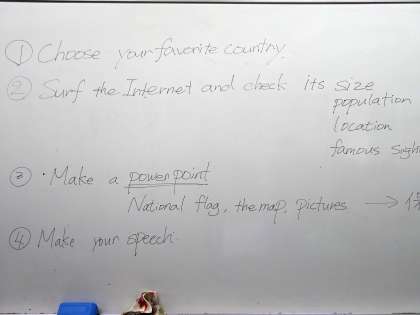 ① Choose your favorite country.
② Surf the Internet and check its size
population
location
famous
③ ・Make a power point
National flag, the map, pictures →
④ Make your speech.